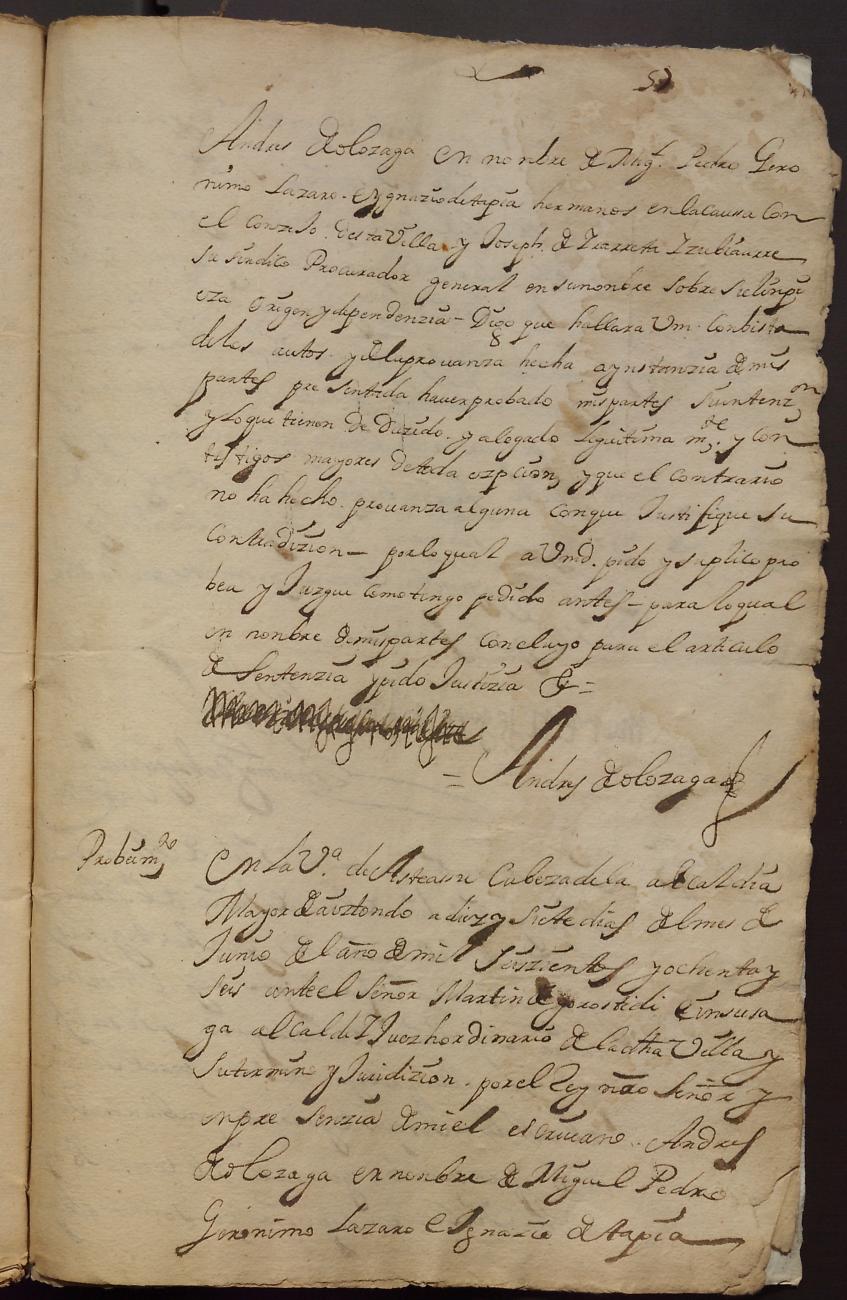 57
Andres de olozaga en nonbre de Migl. Pedro Gero
nimo Lazaro. e ygnazio de tapia hermanos en la causa Con
el Conzejo. desta Villa. y Joseph. de Yrarreta Yzubiaurre
su sindico Procurador general en su nonbre sobre su linpi
eza origen y dependenzia = Digo que hallara Vm. Con bista
de los autos. y de la provanza hecha a ynstanzia de mis
partes presentada haver probado mis partes su yntenzon
y lo que tienen de duzido. y alegado lijitima mte. y con
testigos mayores de toda ezpcion, y que el Contrario
no ha hecho. provanza alguna con que Justifique su
Contradizion = por lo qual a Vmd. pido y suplico pro
bea y Juzgue como tengo pedido antes = para lo qual
en nonbre de mis partes Concluyo para el articulo
de Sentenzia y pido Justizia &=
= Andres de olozaga
Probeimto
En la Va. de Asteasu Cabeza de la alcaldia
Mayor de aiztondo a diez y siete dias del mes de
Junio del año de mil seiszientos y ochenta y
seis ante el Señor Martin de gorostidi einsusa
ga alcalde Y Juez hordinario de la dha Villa y
su termino y Juridizion. por el Rey nro Señor y
en presenzia de mi el escrivano. Andres
de olozaga en nonbre de Miguel Pedro
Geronimo Lazaro e Ygnazio de tapia